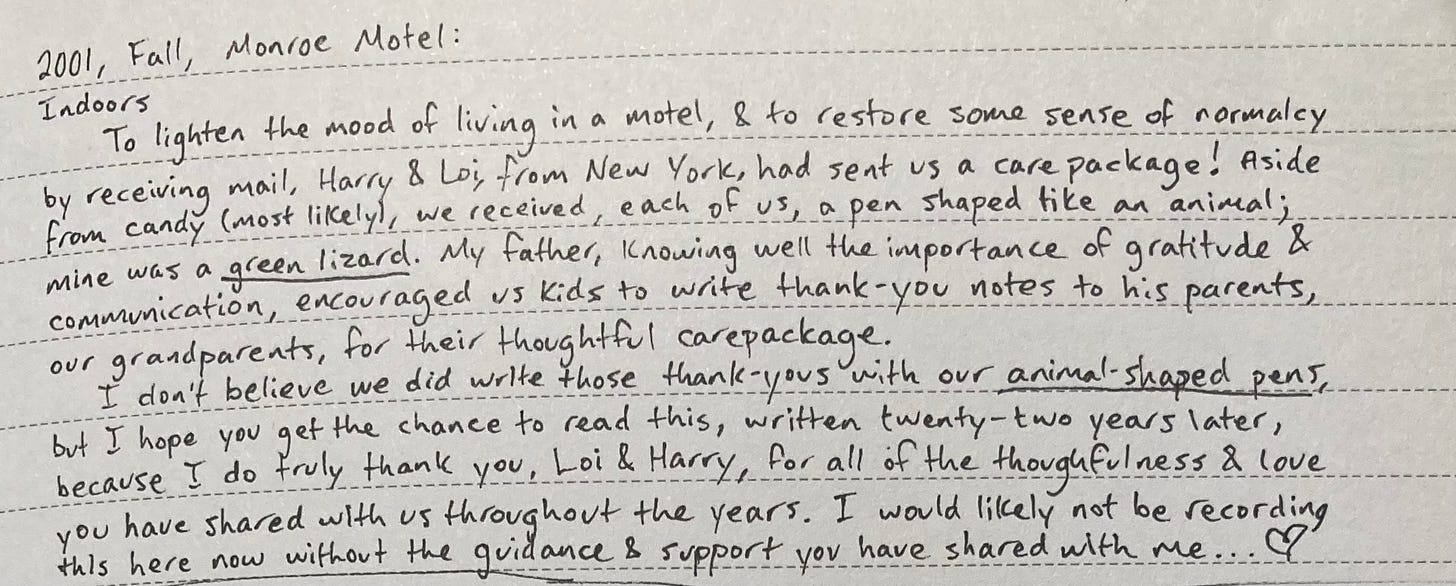 2001, Fall, Monroe Motel:
Indoors
To lighten the mood of living in a motel, & to restore some sense of normalcy
by receiving mail, Harry & Loi, from New York, had sent us a care package! Aside
from candy (most likely), we received, each of us, a pen shaped like an animal;
mine was a green lizard. My father, knowing well the importance of gratitude &
communication, encouraged us kids to write thank-you notes to his parents,
our grandparents, for their thoughtful carepackage.
I don't believe we did write those thank-yous with our animal-shaped pens,
but I hope you get the chance to read this, written twenty-two years later,
because I do truly thank you, Loi & Harry, for all of the thoughfulness & love
you have shared with us throughout the years. I would likely not be recording
this here now without the guidance & support you have shared with me... ♡